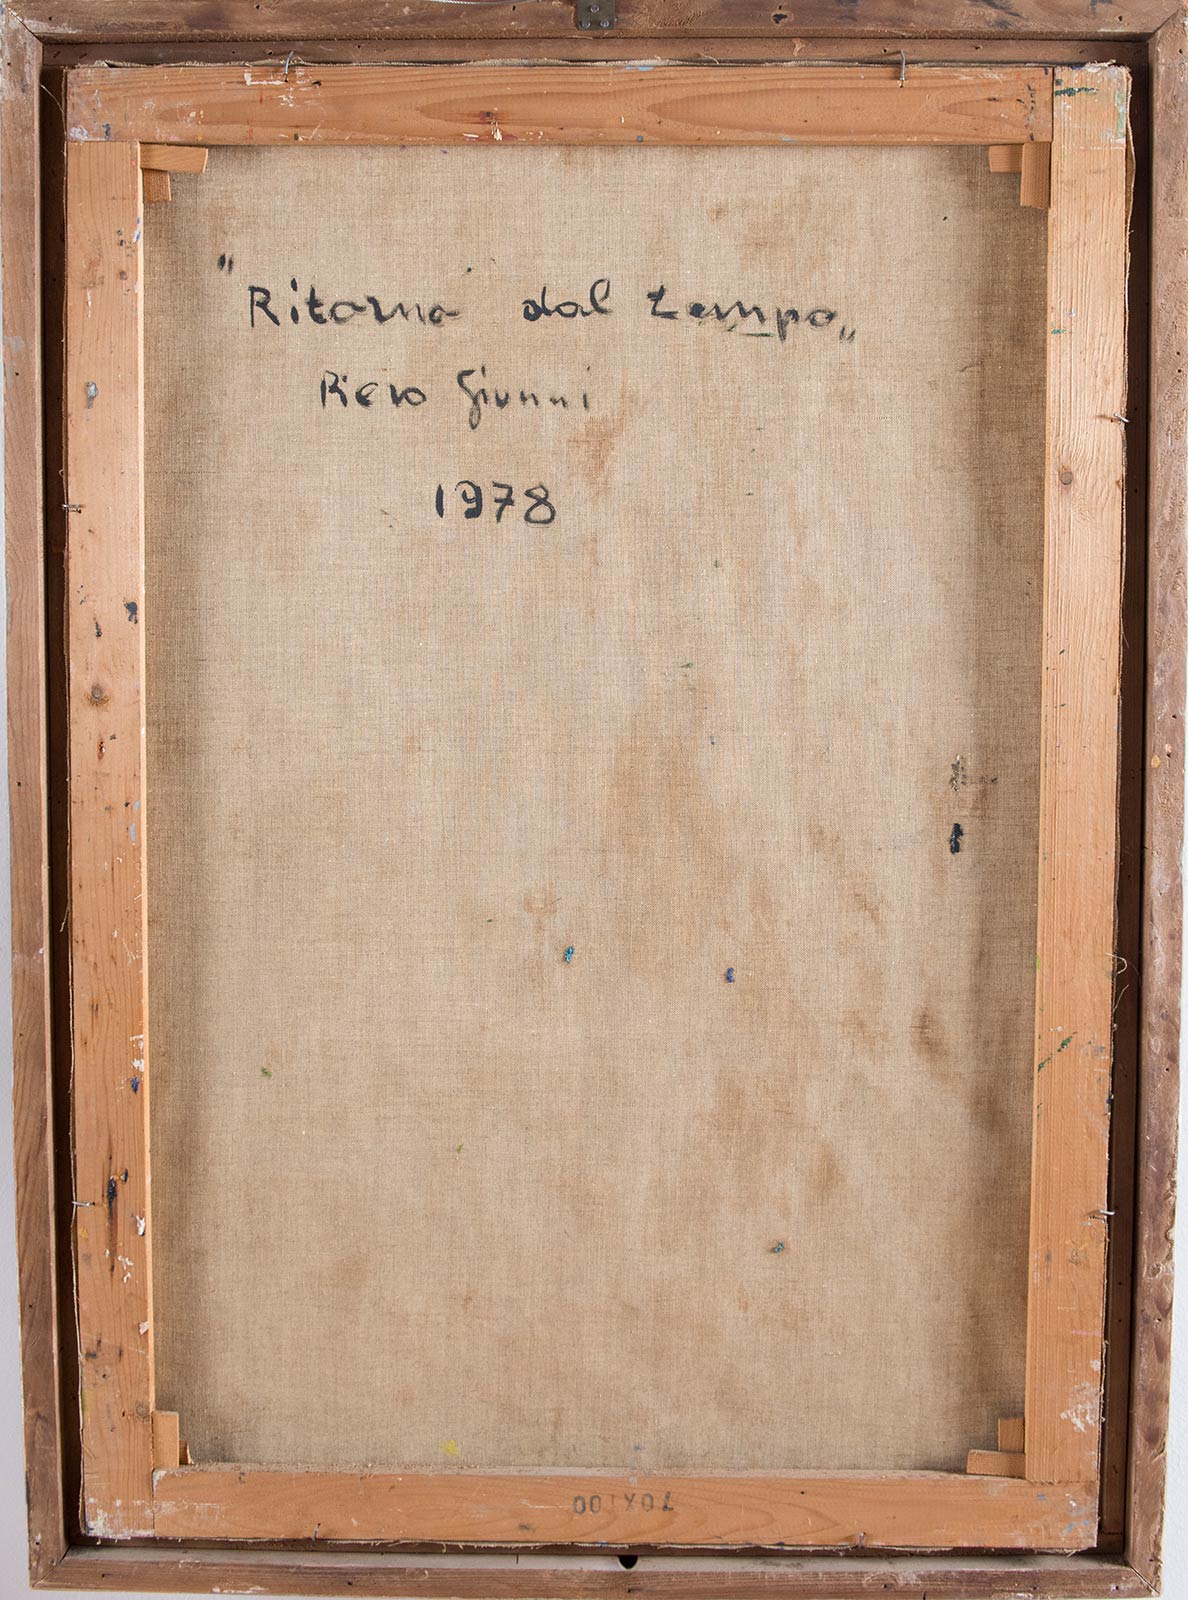 "Ritorno dal tempo„
Piero Giunni
1978
70X100